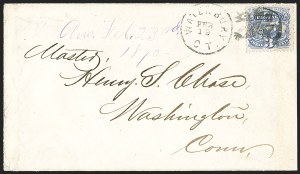 Ans Feb. 23
1870
WATERBURY
FEB
CT.
Master,
Henry S. Chase,
Washington,
Conn.